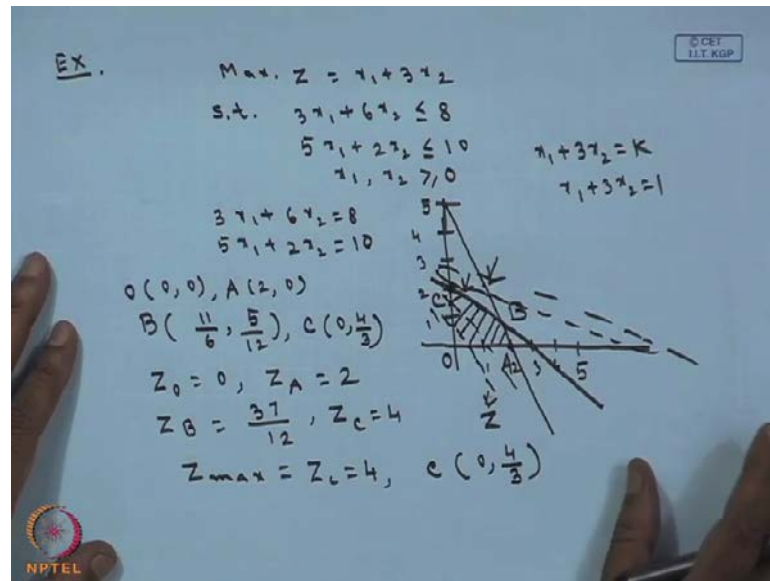 © CET
I.I.T. KGP
EX.
Max. Z = x₁ + 3x₂
s.t. 3x₁ + 6x₂ ≤ 8
5x₁ + 2x₂ ≤ 10
x₁, x₂ ≥ 0
x₁ + 3x₂ = K
x₁ + 3x₂ = 1
3x₁ + 6x₂ = 8
5x₁ + 2x₂ = 10
O(0,0), A(2,0)
B(11/6, 5/12), C(0, 4/3)
Z₀ = 0, Z_A = 2
Z_B = 37/12, Z_C = 4
Z_max = Z_C = 4, C(0, 4/3)
5
4
3
2
C
B
1
O
A
2
3
5
Z
NPTEL